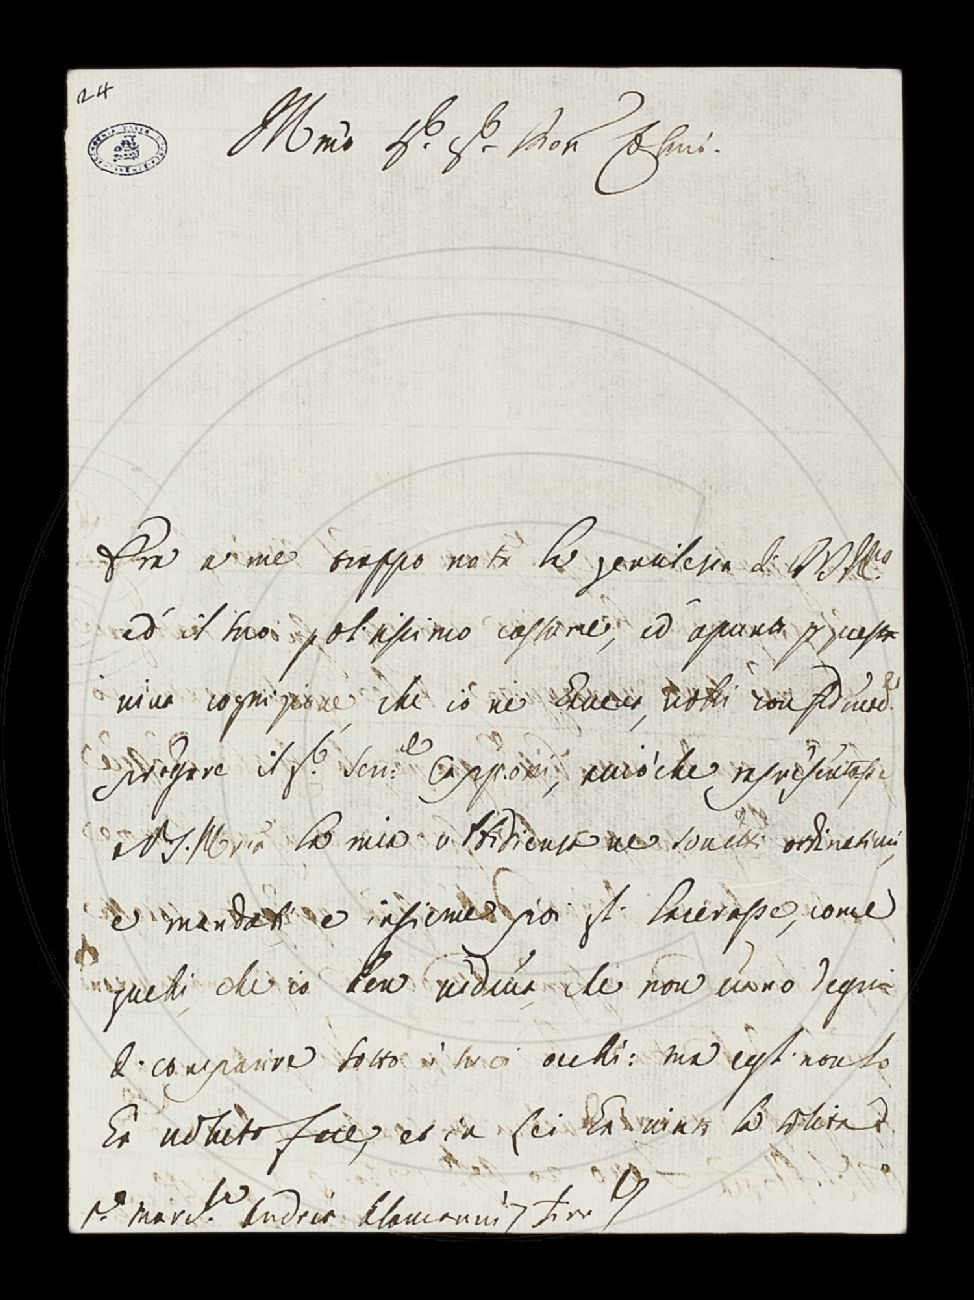 24
Ill.mo Sr. Sr. Pron Col.mo
Era a me troppo nota la gentilezza di V.S. Ill.ma
ed il suo politissimo costume, ed apunto p questa
viva cognizione, che io ne teneva, volli con
pregare il Sr. Sen.e Capponi, acciòche representasse
a V.S. Ill.ma la mia ubbidienza ne sonetti ordinatimi,
e mandati e insieme poi gli lacerasse, come
quelli che io ben vedeva che non erano degni
di comparire sotto i suoi occhi: ma egli non lo
ha voluto fare, et in Lei ha vinto la solita
Sr. March.e Andrea Alamanni / Fir.e